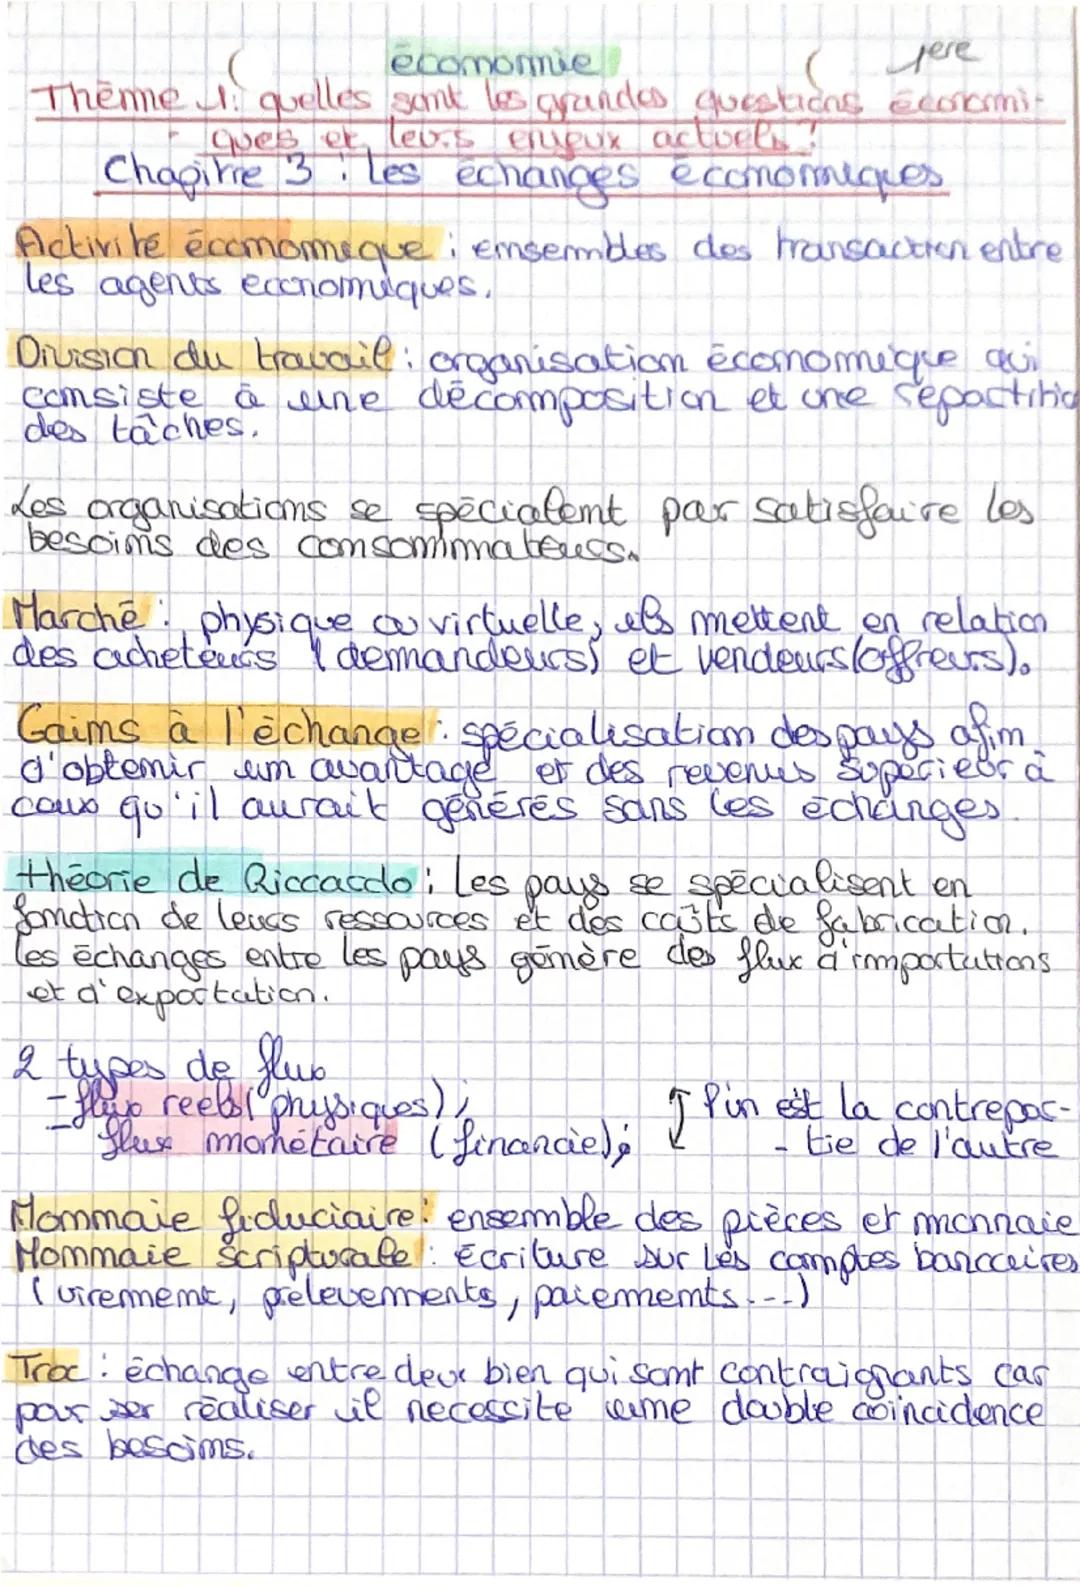 économie
1ere
Thème 1: quelles sont les grandes questions économi-
ques et leurs enjeux actuels ?
Chapitre 3 : les échanges économiques
Activité économique : ensembles des transaction entre
les agents economiques.
Division du travail : organisation économique qui
consiste à une décomposition et une répartitio
des tâches.
Les organisations se spécialent par satisfaire les
besoins des consommateurs.
Marché : physique ou virtuelle, ils mettent en relation
des acheteurs (demandeurs) et vendeurs (offreurs).
Gains à l'échange : spécialisation des pays afin
d'obtenir un avantage et des revenus supérieur à
ceux qu'il aurait générés sans les échanges.
théorie de Riccardo : Les pays se spécialisent en
fonction de leurs ressources et des coûts de fabrication.
les échanges entre les pays génère des flux d'importations
et d'exportation.
2 types de flux
- flux reels (physiques),
flux monétaire (financie);
↕ l'un est la contrepar-
- tie de l'autre
Monnaie fiduciaire : ensemble des pièces et monnaie
Monnaie scripturale : écriture sur les comptes bancaires
(virement, prelevements, paiements...)
Troc : échange entre deux bien qui sont contraignants car
pour ser réaliser il necessite une double coïncidence
des besoins.